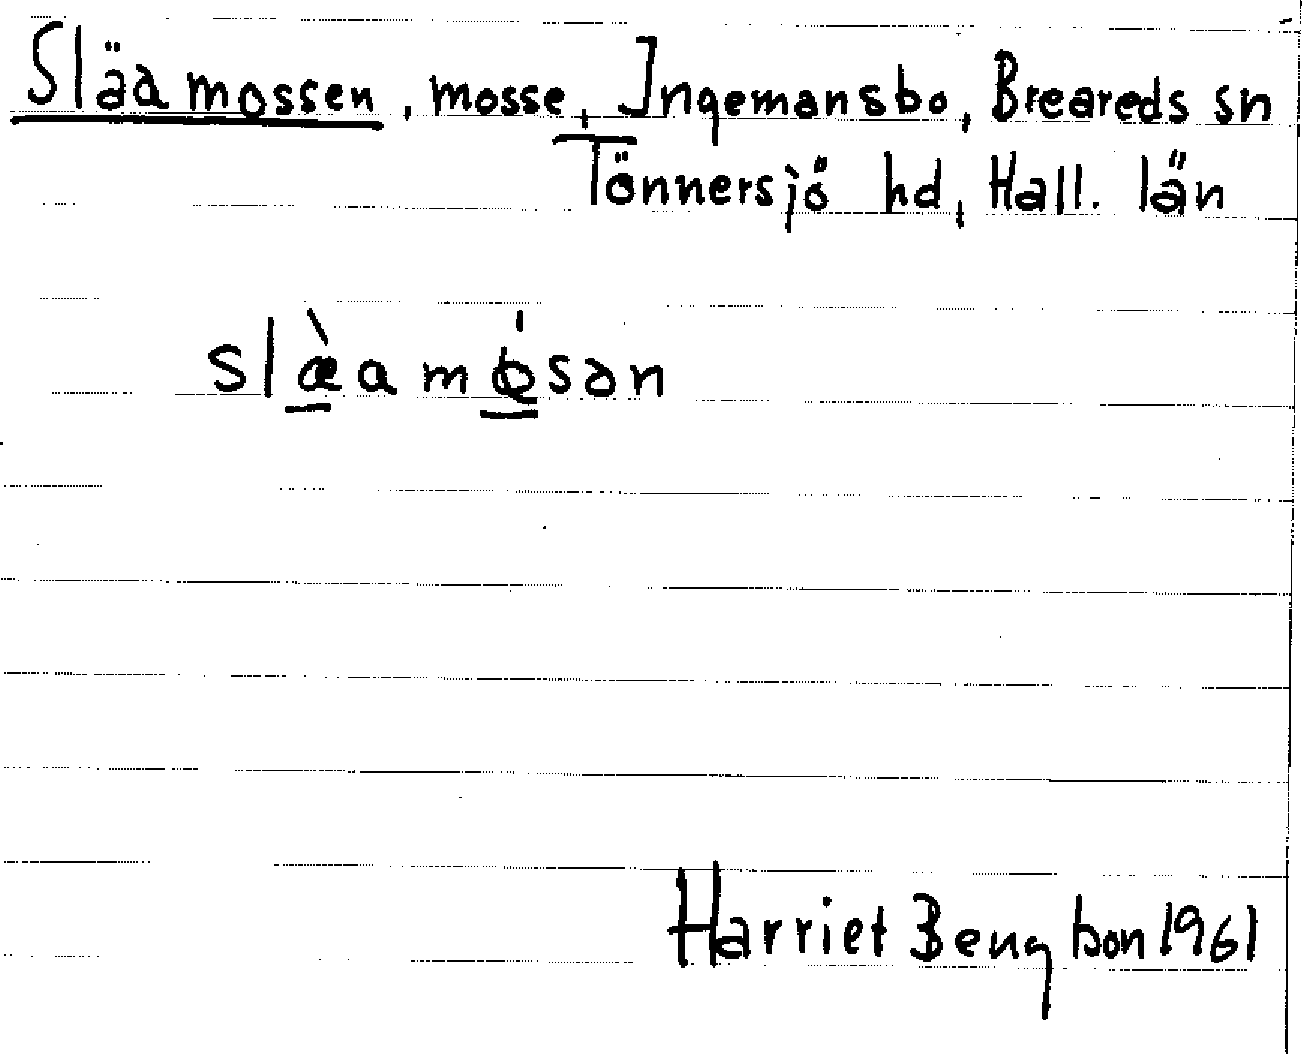 Släamossen, mosse, Ingemansbo, Breareds sn
Tönnersjö hd, Hall. län
slæ̀amósən
Harriet Bengtson 1961